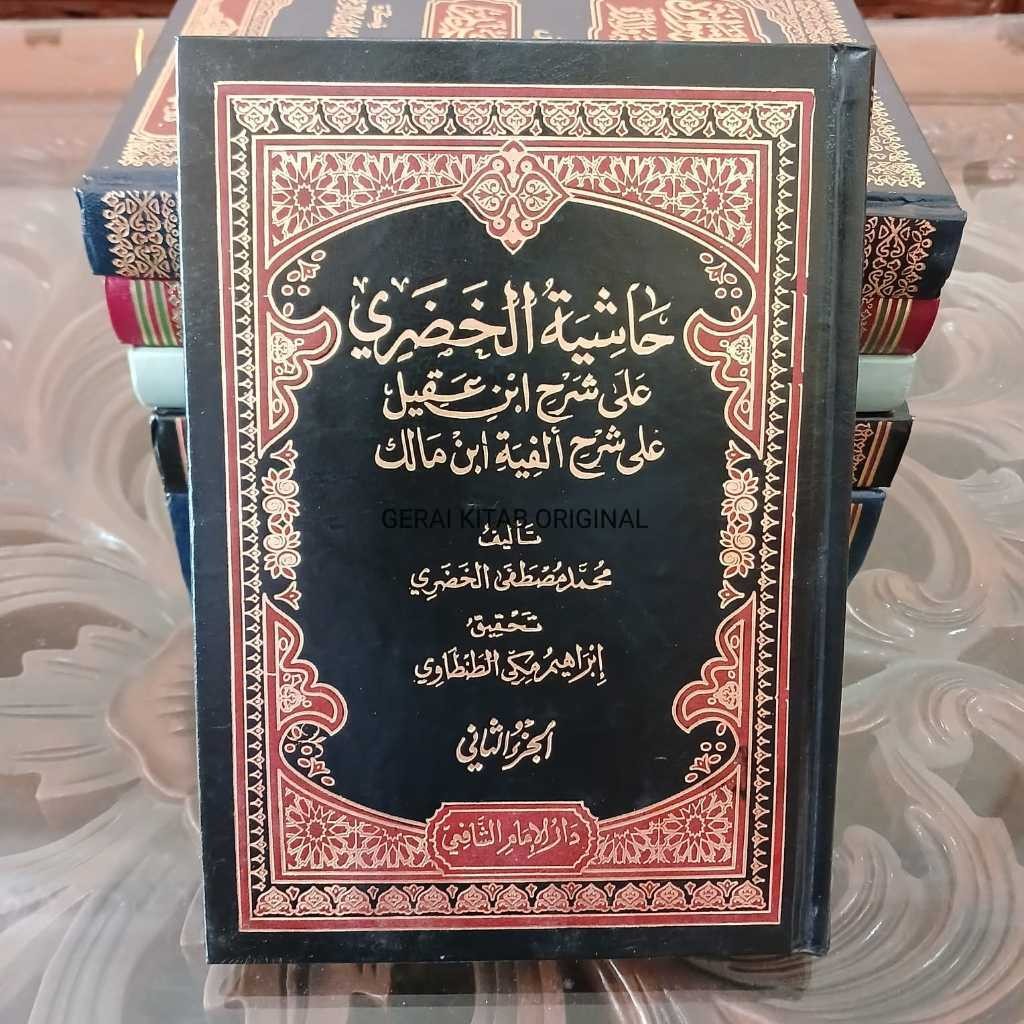 حَاشِيَةُ الخَضَرِي
عَلَى شَرْحِ ابْنِ عَقِيل
عَلَى شَرْحِ أَلفِيَةِ ابْنْ مَالك
GERAI KITAB ORIGINAL
تَأليفُ
مُحَمَّد مُصْطَفَى الخَضَرِي
تَحْقِيقُ
إِبْرَاهِيمُ مَكِّي الطَنْطَاوِي
الجُزءُ الثَّانِي
دَارُ الإِمَامِ الشَّافِعِيّ